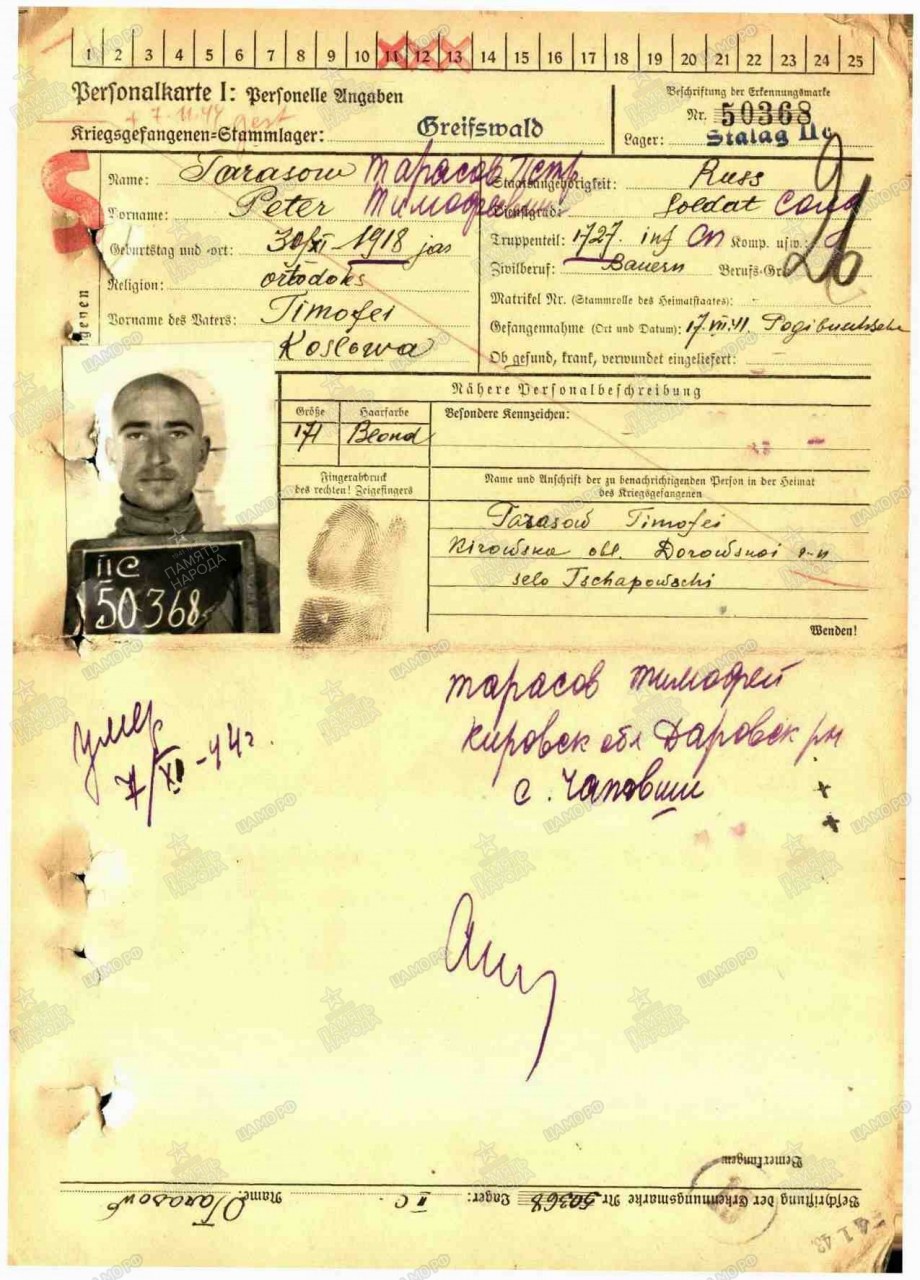 1 2 3 4 5 6 7 8 9 10 11 12 13 14 15 16 17 18 19 20 21 22 23 24 25
Personalkarte I: Personelle Angaben
+ 7.11.44 gest
Kriegsgefangenen-Stammlager: Greifswald
Beschriftung der Erkennungsmarke
Nr. 50368
Lager: Stalag II c
S
Name: Tarasow Тарасов Петр
Vorname: Peter Тимофеевич
Geburtstag und -ort: 30/XI 1918 jas
Religion: ortodoks
Vorname des Vaters: Timofei
Koslowa
Staatsangehörigkeit: Russ
Dienstgrad: Soldat
Truppenteil: 1727. inf СП Komp. usw.:
Zivilberuf: Bauern Berufs-Gr.
Matrikel Nr. (Stammrolle des Heimatstaates):
Gefangennahme (Ort und Datum): 17.VII.41.
Ob gesund, krank, verwundet eingeliefert:
Nähere Personalbeschreibung
Größe Haarfarbe Besondere Kennzeichen:
171 Blond
Fingerabdruck
des rechten! Zeigefingers
Name und Anschrift der zu benachrichtigenden Person in der Heimat
des Kriegsgefangenen
Tarasow Timofei
Kirowska obl. Dorowskoi r-n
selo Tschapowschi
IIC
50368
ПАМЯТЬ
НАРОДА
Wenden!
Тарасов Тимофей
Кировск обл Даровск рн
с. Чаповши
умер
7/XI-44г.
Bemerkungen
Beschriftung der Erkennungsmarke Nr. 50368 Lager: II C Name: Tarasow
ЦАМО.РФ